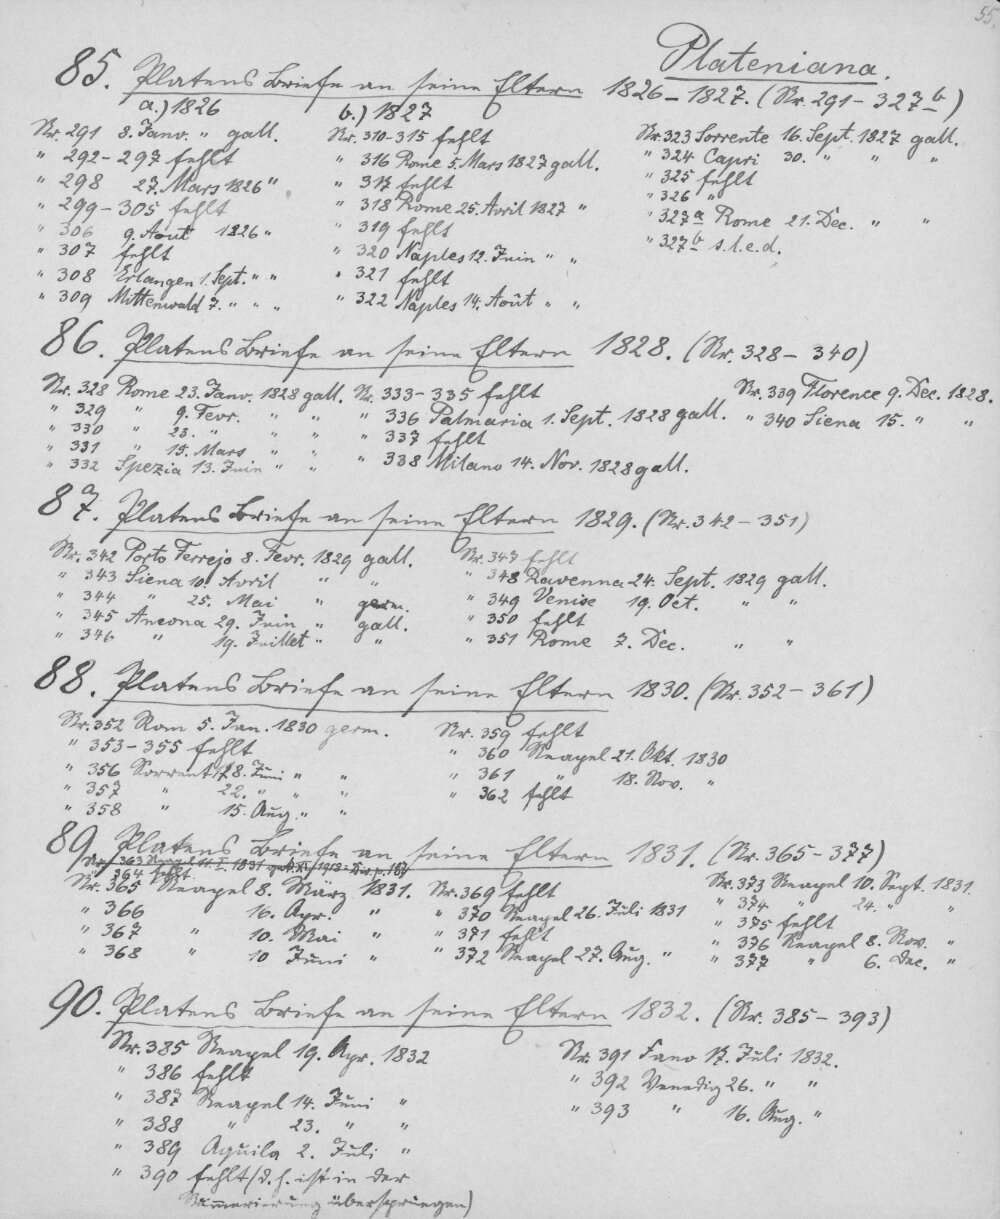 55.
Plateniana.
85. Platens Briefe an seine Eltern 1826–1827. (Nr. 291–327b)
a.) 1826
Nr. 291 8. Janv. " gall.
" 292–297 fehlt
" 298 27. Mars 1826 "
" 299–305 fehlt
" 306 9. Aout 1826 "
" 307 fehlt
" 308 Erlangen 1. Sept. " "
" 309 Mittenwald 7. " " "
b.) 1827
Nr. 310–315 fehlt
" 316 Rome 5. Mars 1827 gall.
" 317 fehlt
" 318 Rome 25. Avril 1827 "
" 319 fehlt
" 320 Naples 12. Juin " "
" 321 fehlt
" 322 Naples 14. Août " "
Nr. 323 Sorrente 16. Sept. 1827 gall.
" 324 Capri 30. " " "
" 325 fehlt
" 326 "
" 327a Rome 21. Dec. " "
" 327b s.l.e.d.
86. Platens Briefe an seine Eltern 1828. (Nr. 328–340)
Nr. 328 Rome 23. Janv. 1828 gall.
" 329 " 9. Fevr. " "
" 330 " 23. " " "
" 331 " 15. Mars " "
" 332 Spezia 13. Juin " "
Nr. 333–335 fehlt
" 336 Palmaria 1. Sept. 1828 gall.
" 337 fehlt
" 338 Milano 14. Nov. 1828 gall.
Nr. 339 Florence 9. Dec. 1828.
" 340 Siena 15. " "
87. Platens Briefe an seine Eltern 1829. (Nr. 342–351)
Nr. 342 Porto Ferrejo 8. Fevr. 1829 gall.
" 343 Siena 10. Avril " "
" 344 " 25. Mai " germ.
" 345 Ancona 29. Juin " gall.
" 346 " 19. Juillet " "
Nr. 347 fehlt
" 348 Ravenna 24. Sept. 1829 gall.
" 349 Venise 19. Oct. " "
" 350 fehlt
" 351 Rome 7. Dec. " "
88. Platens Briefe an seine Eltern 1830. (Nr. 352–361)
Nr. 352 Rom 5. Jan. 1830 germ.
" 353–355 fehlt
" 356 Sorrent 18. Juni " "
" 357 " 22. " " "
" 358 " 15. Aug. " "
Nr. 359 fehlt
" 360 Neapel 21. Okt. 1830
" 361 " 18. Nov. "
" 362 fehlt
89. Platens Briefe an seine Eltern 1831. (Nr. 365–377)
Nr. 363 Neapel 11. I. 1831
364 fehlt
Nr. 365 Neapel 8. März 1831.
" 366 16. Apr. "
" 367 " 10. Mai "
" 368 " 10 Juni "
Nr. 369 fehlt
" 370 Neapel 26. Juli 1831
" 371 fehlt
" 372 Neapel 27. Aug. "
Nr. 373 Neapel 10. Sept. 1831.
" 374 " 24. " "
" 375 fehlt
" 376 Neapel 8. Nov. "
" 377 " 6. Dec. "
90. Platens Briefe an seine Eltern 1832. (Nr. 385–393)
Nr. 385 Neapel 19. Apr. 1832
" 386 fehlt
" 387 Neapel 14. Juni "
" 388 " 23. " "
" 389 Aquila 2. Juli "
" 390 fehlt (d.h. ist in der
Numerierung übersprungen)
Nr. 391 Fano 17. Juli 1832.
" 392 Venedig 26. " "
" 393 " 16. Aug. "